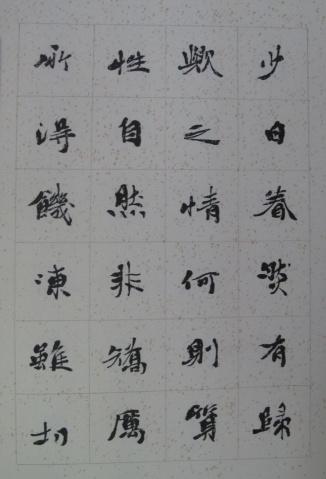 少日眷然有歸
歟之情何則質
性自然非矯厲
所得饑凍雖切